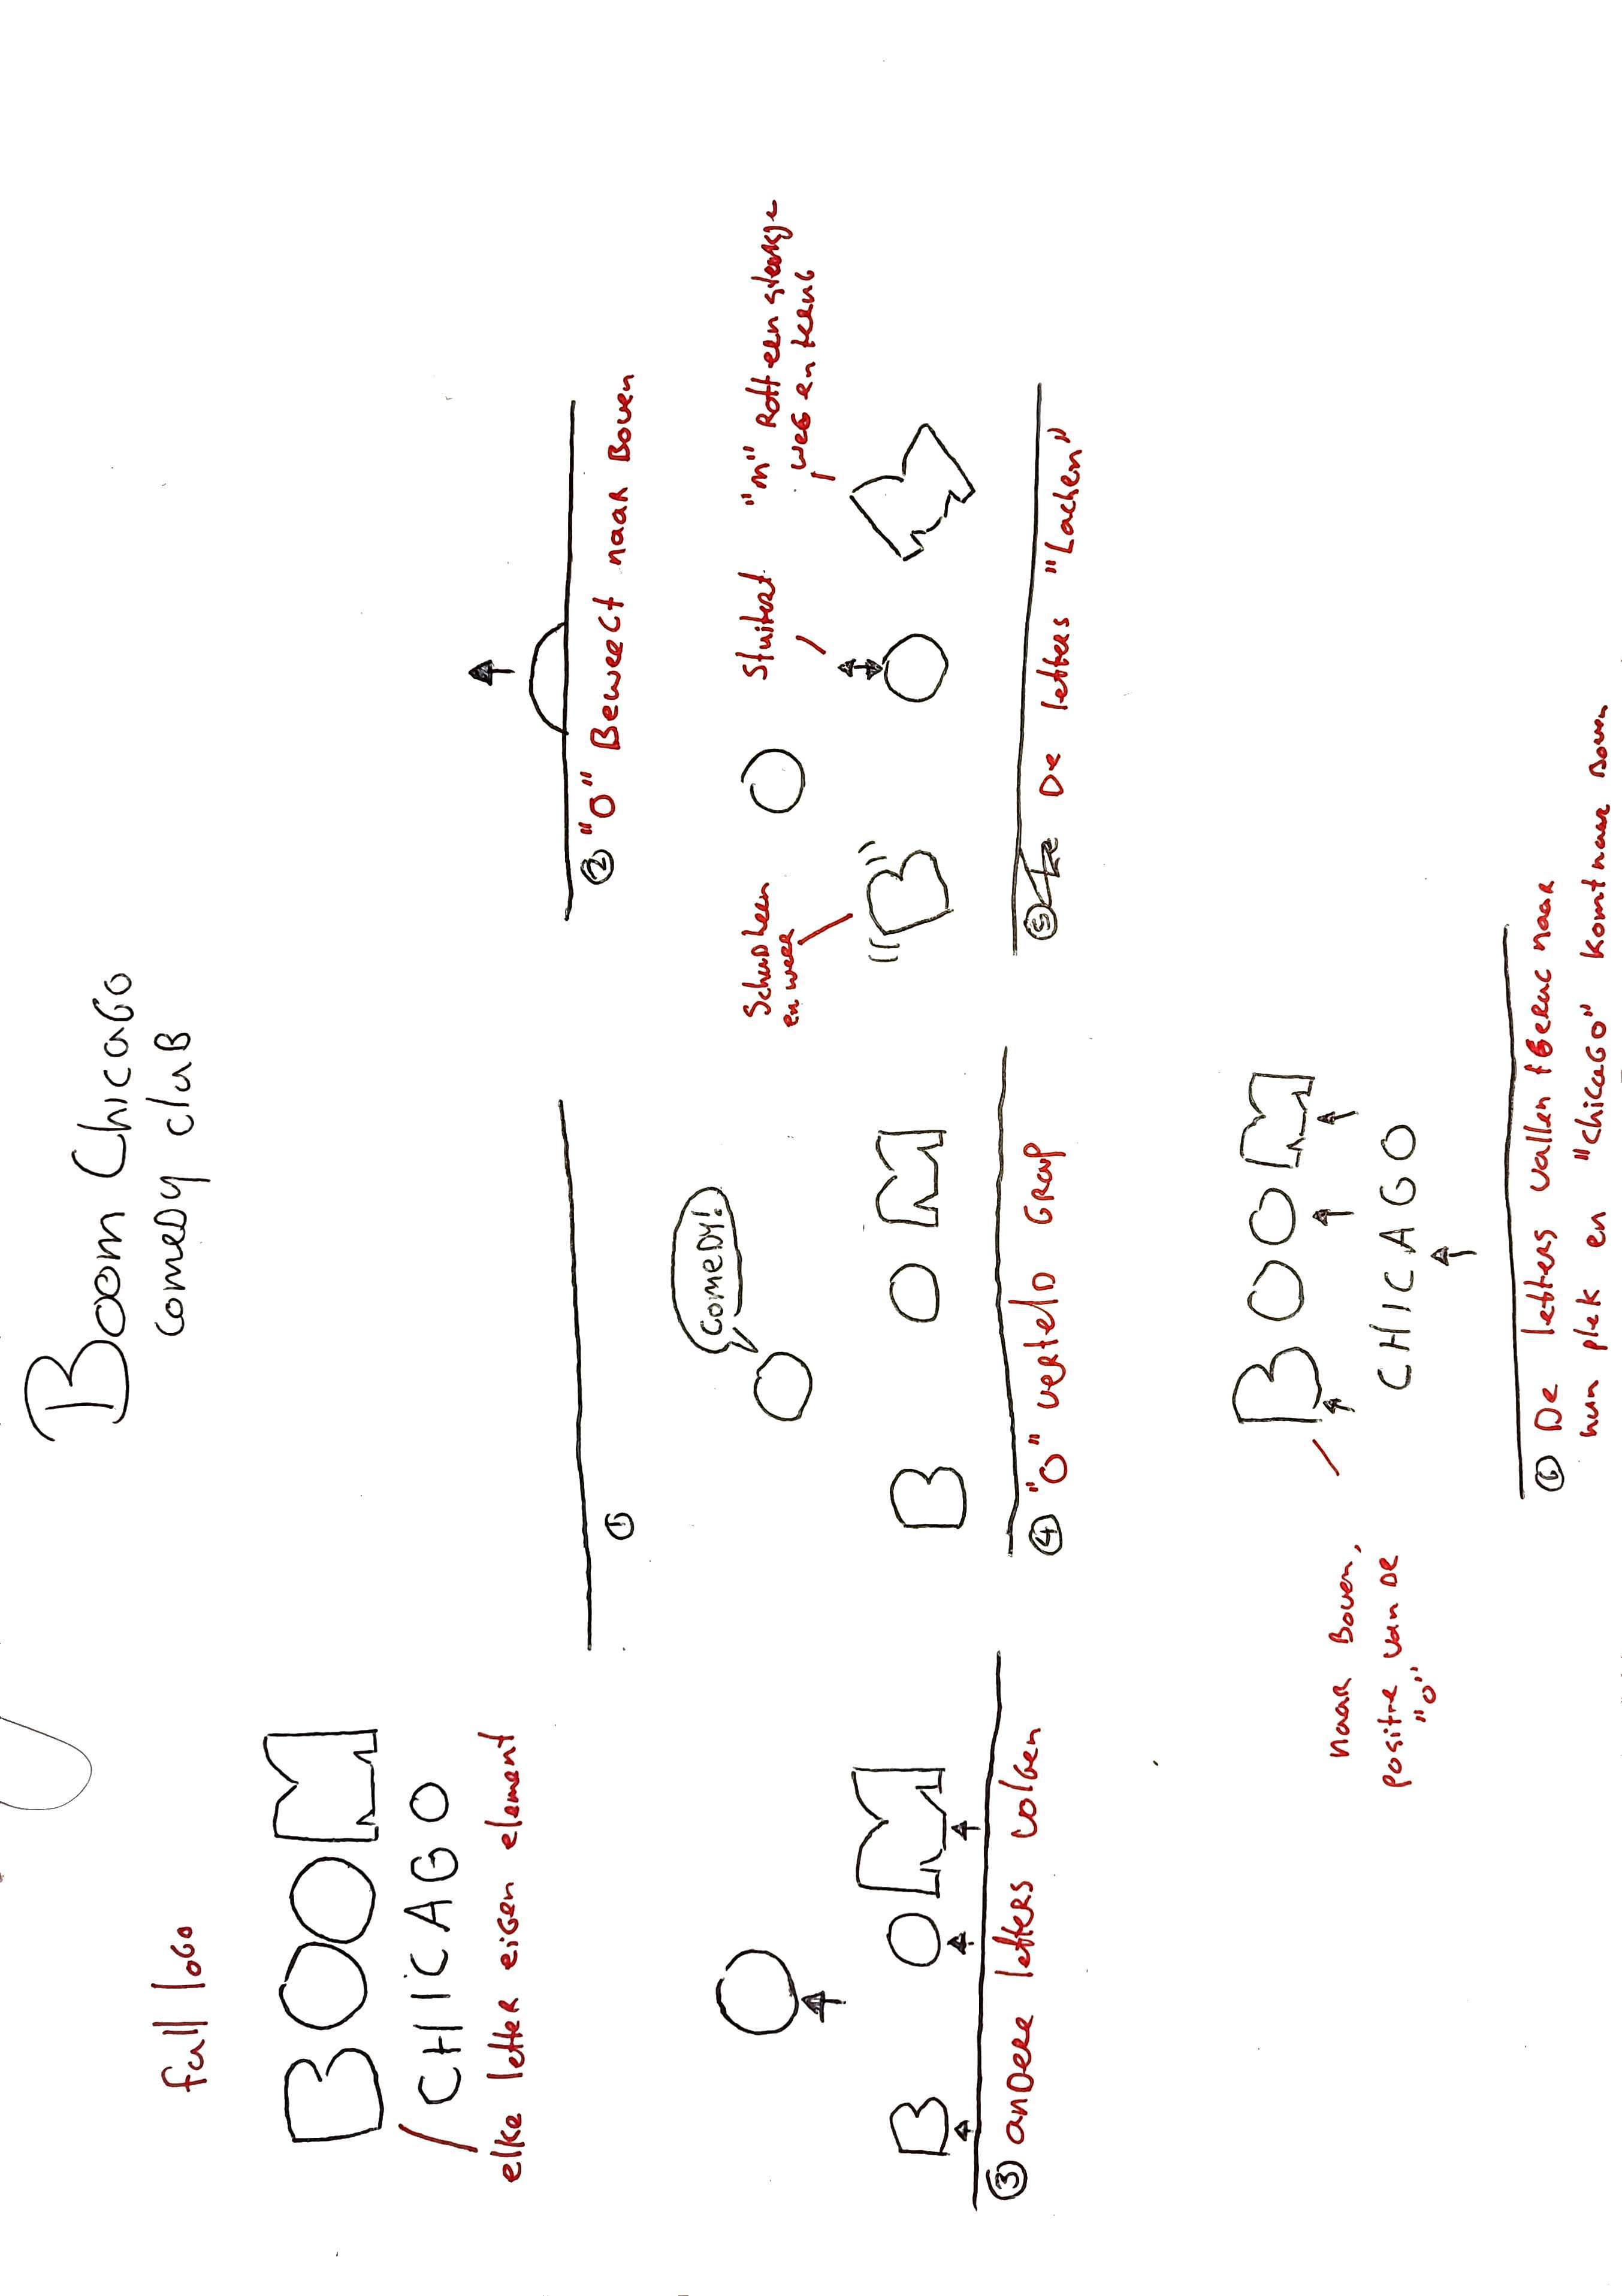 Boom Chicago
comedy club
full logo
BOOM
CHICAGO
elke letter eigen element
①
② "O" Beweegt naar Boven
B O M
③ andere letters volgen
comedy!
B O M
④ "O" verteld Grap
Schud heen
en weer
Stuitert
"M" Rolt een stukje
weg en terug
B O M
⑤ De letters "Lachen"
BOOM
naar Boven,
positie van de
"O"
CHICAGO
⑥ De letters vallen terug naar
hun plek en "Chicago" komt naar Boven